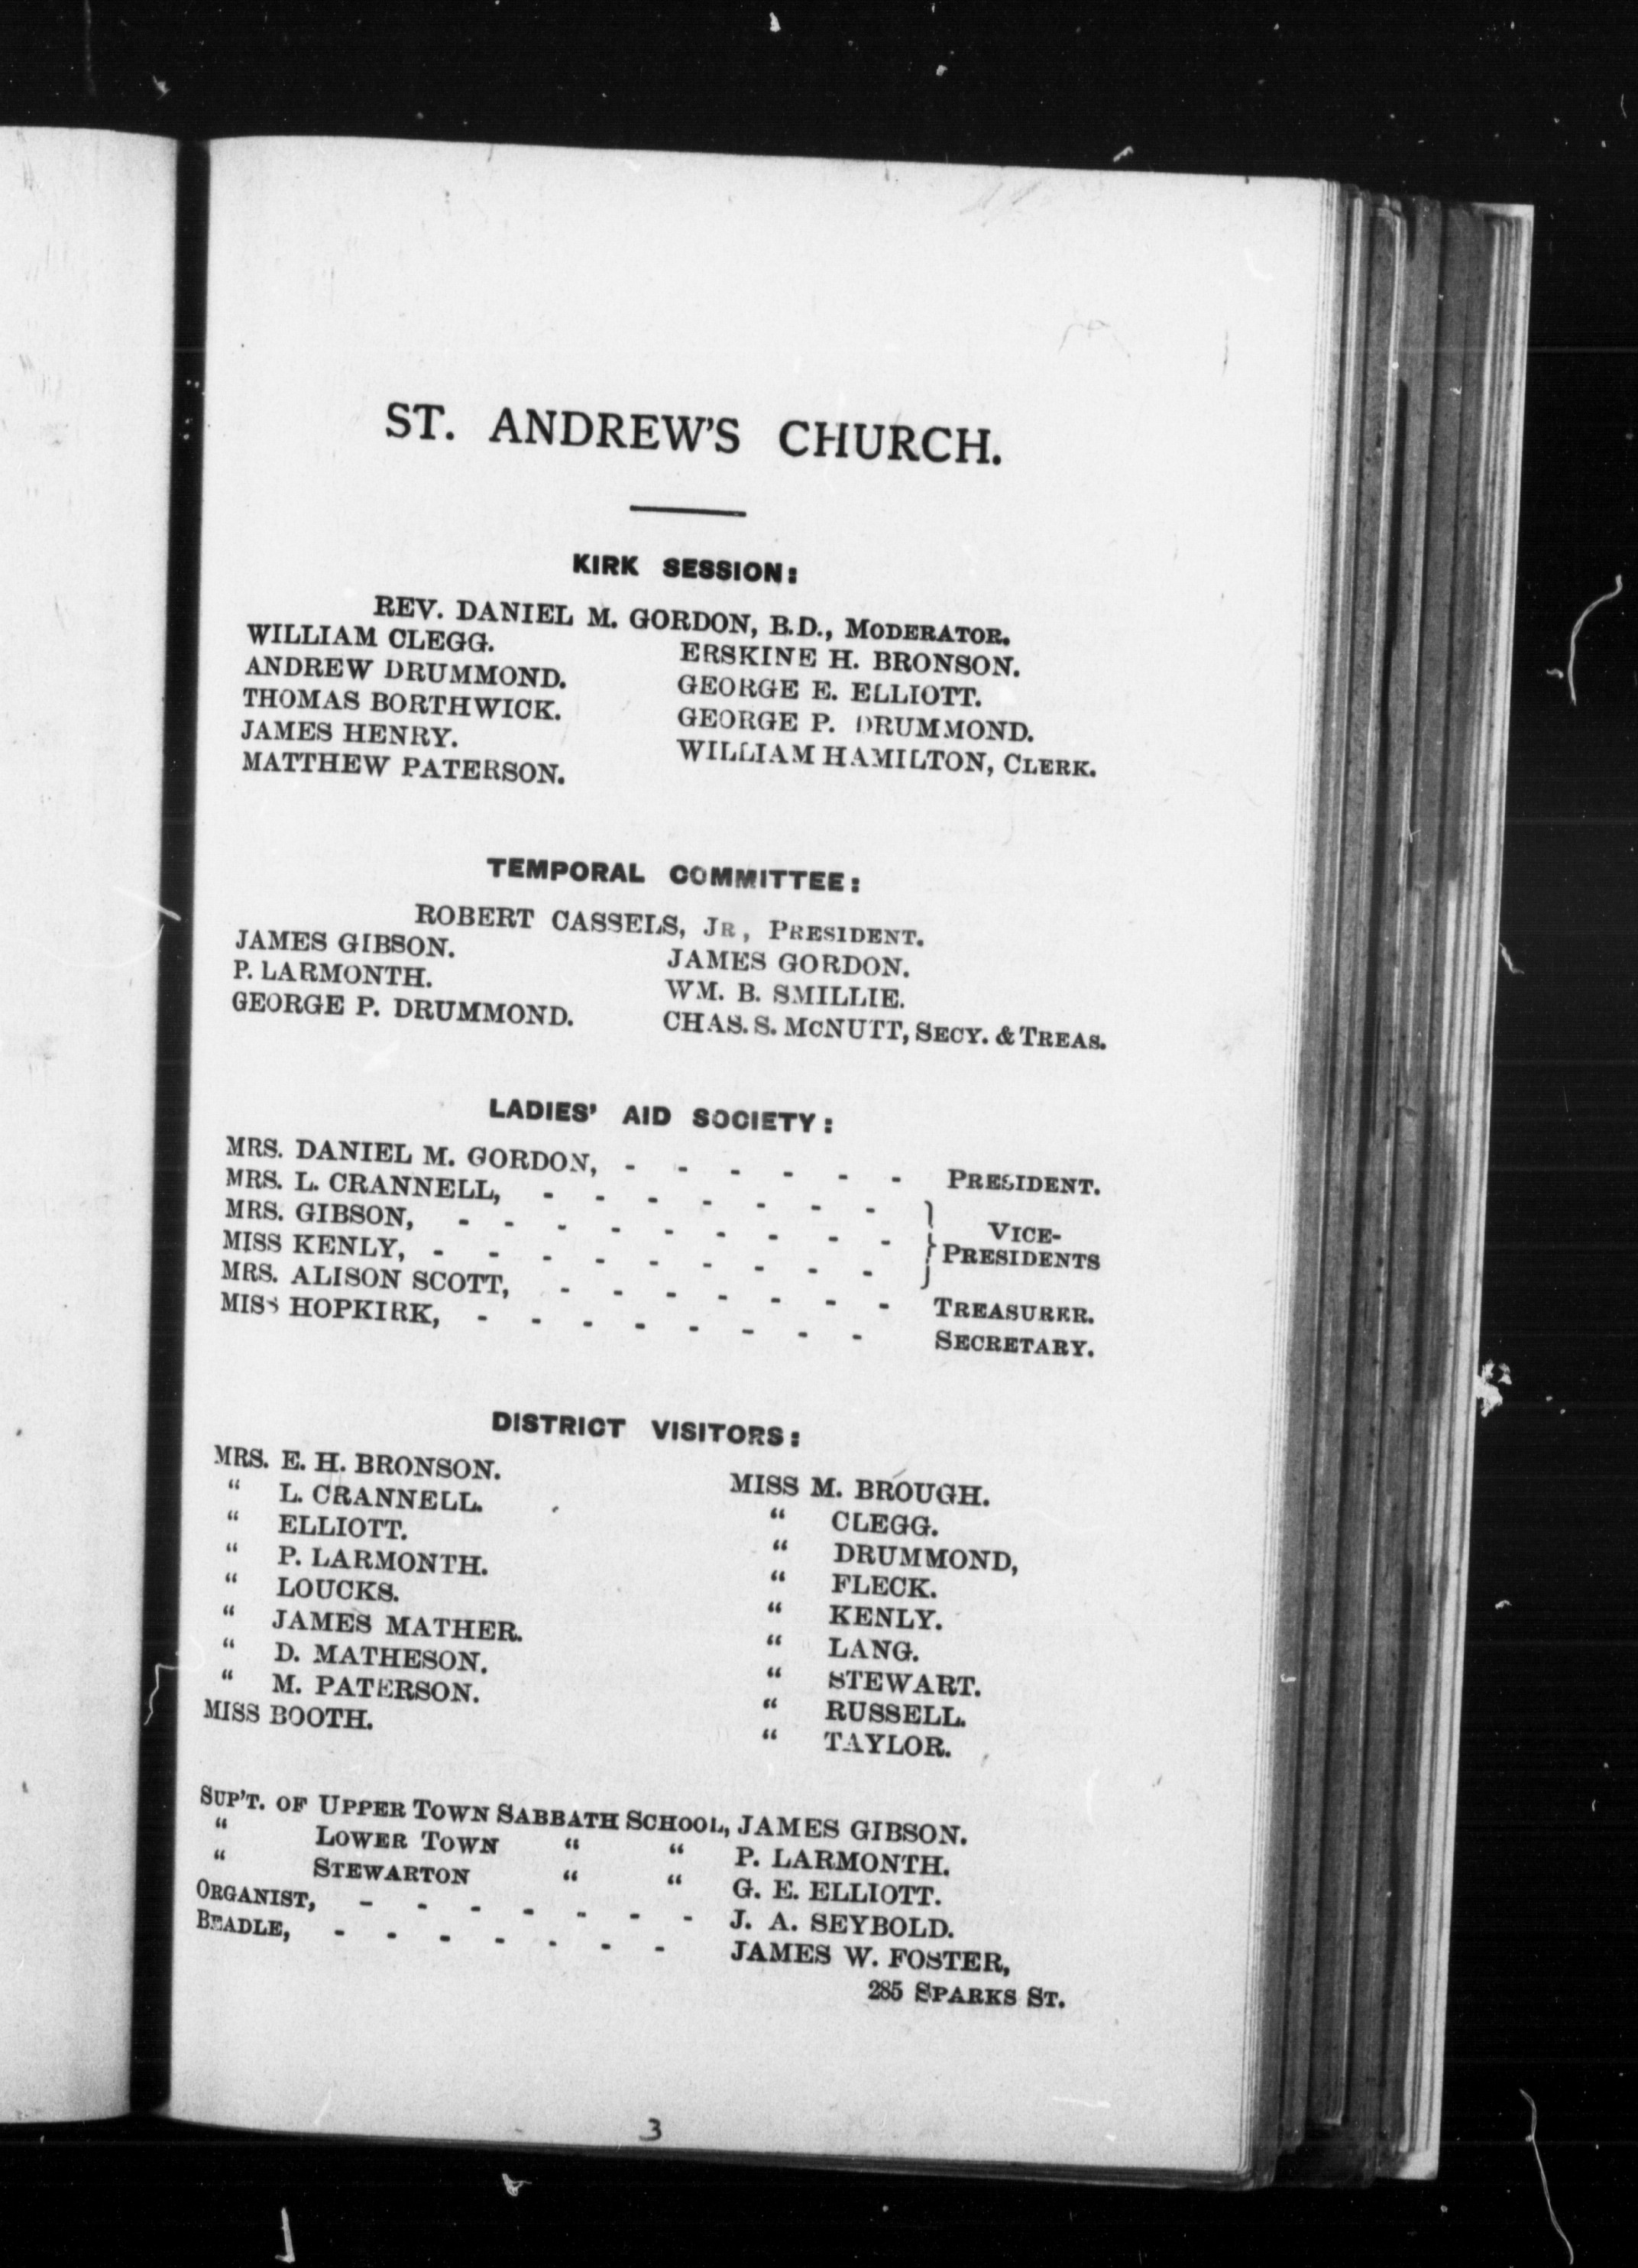 ST. ANDREW'S CHURCH.
KIRK SESSION:
REV. DANIEL M. GORDON, B.D., MODERATOR.
WILLIAM CLEGG.
ANDREW DRUMMOND.
THOMAS BORTHWICK.
JAMES HENRY.
MATTHEW PATERSON.
ERSKINE H. BRONSON.
GEORGE E. ELLIOTT.
GEORGE P. DRUMMOND.
WILLIAM HAMILTON, CLERK.
TEMPORAL COMMITTEE:
ROBERT CASSELS, JR, PRESIDENT.
JAMES GIBSON.
P. LARMONTH.
GEORGE P. DRUMMOND.
JAMES GORDON.
WM. B. SMILLIE.
CHAS. S. MCNUTT, SECY. & TREAS.
LADIES' AID SOCIETY:
MRS. DANIEL M. GORDON, - - - - - - PRESIDENT.
MRS. L. CRANNELL, - - - - - - -
MRS. GIBSON, - - - - - - - - - } VICE-
MISS KENLY, - - - - - - - - - PRESIDENTS
MRS. ALISON SCOTT, - - - - - - - TREASURER.
MISS HOPKIRK, - - - - - - - - SECRETARY.
DISTRICT VISITORS:
MRS. E. H. BRONSON.
“ L. CRANNELL.
“ ELLIOTT.
“ P. LARMONTH.
“ LOUCKS.
“ JAMES MATHER.
“ D. MATHESON.
“ M. PATERSON.
MISS BOOTH.
MISS M. BROUGH.
“ CLEGG.
“ DRUMMOND,
“ FLECK.
“ KENLY.
“ LANG.
“ STEWART.
“ RUSSELL.
“ TAYLOR.
SUP'T. OF UPPER TOWN SABBATH SCHOOL, JAMES GIBSON.
“ LOWER TOWN “ “ P. LARMONTH.
“ STEWARTON “ “ G. E. ELLIOTT.
ORGANIST, - - - - - - - J. A. SEYBOLD.
BEADLE, - - - - - - - JAMES W. FOSTER,
285 SPARKS ST.
3